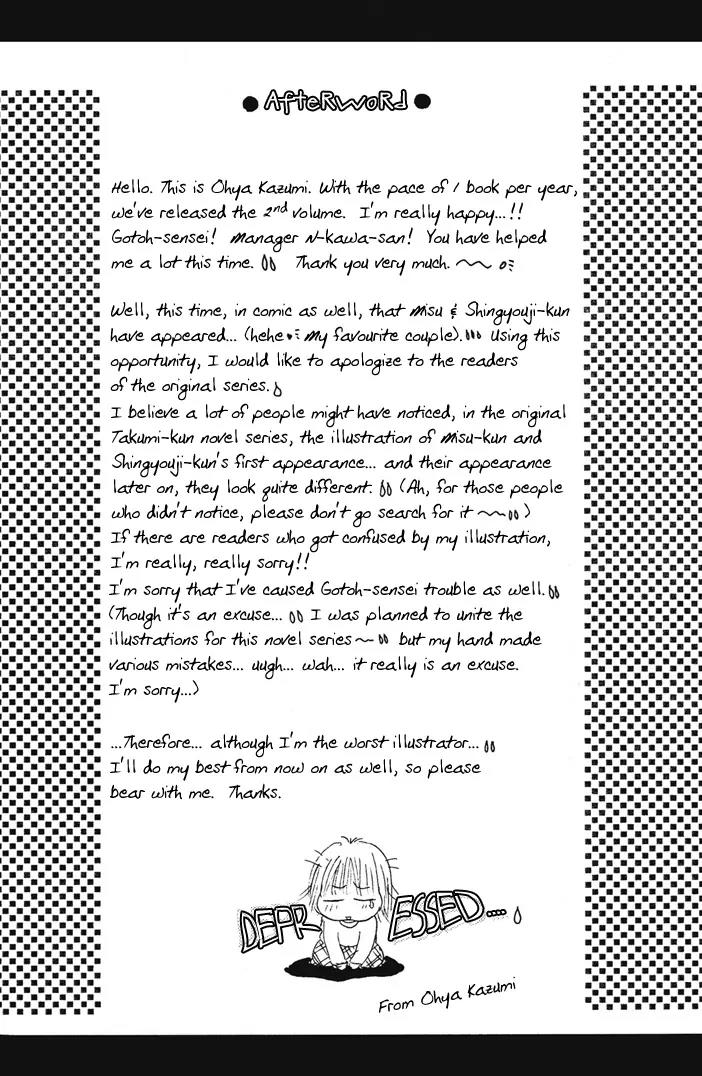 AfteRwoRd
Hello. This is Ohya Kazumi. With the pace of 1 book per year,
we've released the 2nd volume. I'm really happy...!!
Gotoh-sensei! Manager N-kawa-san! You have helped
me a lot this time. Thank you very much.
Well, this time, in comic as well, that Misu & Shingyouji-kun
have appeared... (hehe♥ My favourite couple). Using this
opportunity, I would like to apologize to the readers
of the original series.
I believe a lot of people might have noticed, in the original
Takumi-kun novel series, the illustration of Misu-kun and
Shingyouji-kun's first appearance... and their appearance
later on, they look quite different. (Ah, for those people
who didn't notice, please don't go search for it ~~)
If there are readers who got confused by my illustration,
I'm really, really sorry!!
I'm sorry that I've caused Gotoh-sensei trouble as well.
(Though it's an excuse... I was planned to unite the
illustrations for this novel series~ but my hand made
various mistakes... uugh... wah... it really is an excuse.
I'm sorry...)
...Therefore... although I'm the worst illustrator...
I'll do my best from now on as well, so please
bear with me. Thanks.
DEPRESSED....
From Ohya Kazumi